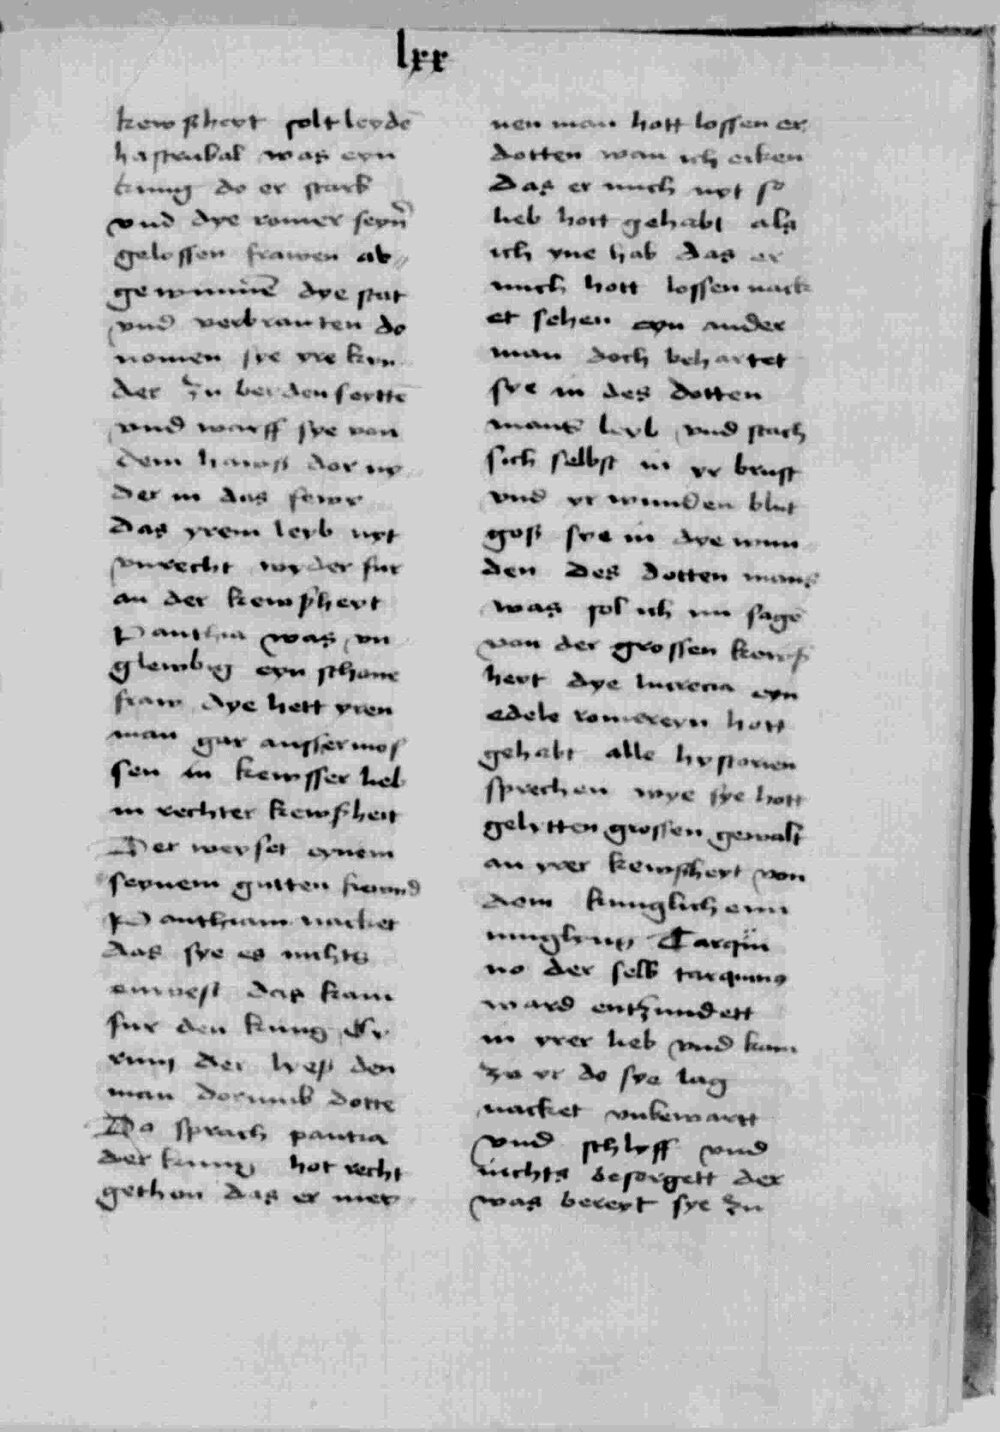 lxx
kewscheyt solt leydē
hastrubal was eyn
kunig do er starb
vnd dye romer seyn̄
gelossen frawen ab
gewunnē dye stat
vnd verbranten do
nomen sye yre kyn
der zu beyden seyttē
vnd warff sye von
dem hawß dor ny
der in das fewr
das yrem leyb nyt
vnrecht wyder fur
an der kewscheyt
Panthia was vn
glewbig eyn schone
fraw dye hett yren
man gar aussermos
sen in kewsser lieb
in rechter kewscheit
Der weyset eynem
seynem gutten frewnd
Panthiam nacket
das sye es nichts
enwest das kam
fur den kunig Cy
rum der lyeß den
man dorumb dotte
Do sprach pantia
der kunig hot recht
gethon das er mey
nen man hott lossen er
dotten wan ich erken
das er mich nyt so
lieb hott gehabt als
ich yne hab das er
mich hott lossen nack
et sehen eyn ander
man doch behartet
sye in des dotten
mans leyb vnd stach
sich selbst in yr brust
vnd yr wunden blut
goß sye in dye wun
den des dotten mans
was sol ich nu sagē
von der grossen kewsch
heyt dye lucrecia eyn
edele romereyn hott
gehabt alle hystorien
sprechen wye sye hott
gelytten grossen gewalt
an yrer kewscheyt von
dem kunglichenn
iunglyng Tarqui
no der selb tarquinus
ward entzundett
in yrer lieb vnd kam
zu yr do sye lag
nacket vnbewartt
vnd schlyff vnd
nichts besorgett der
was bereyt sye zu